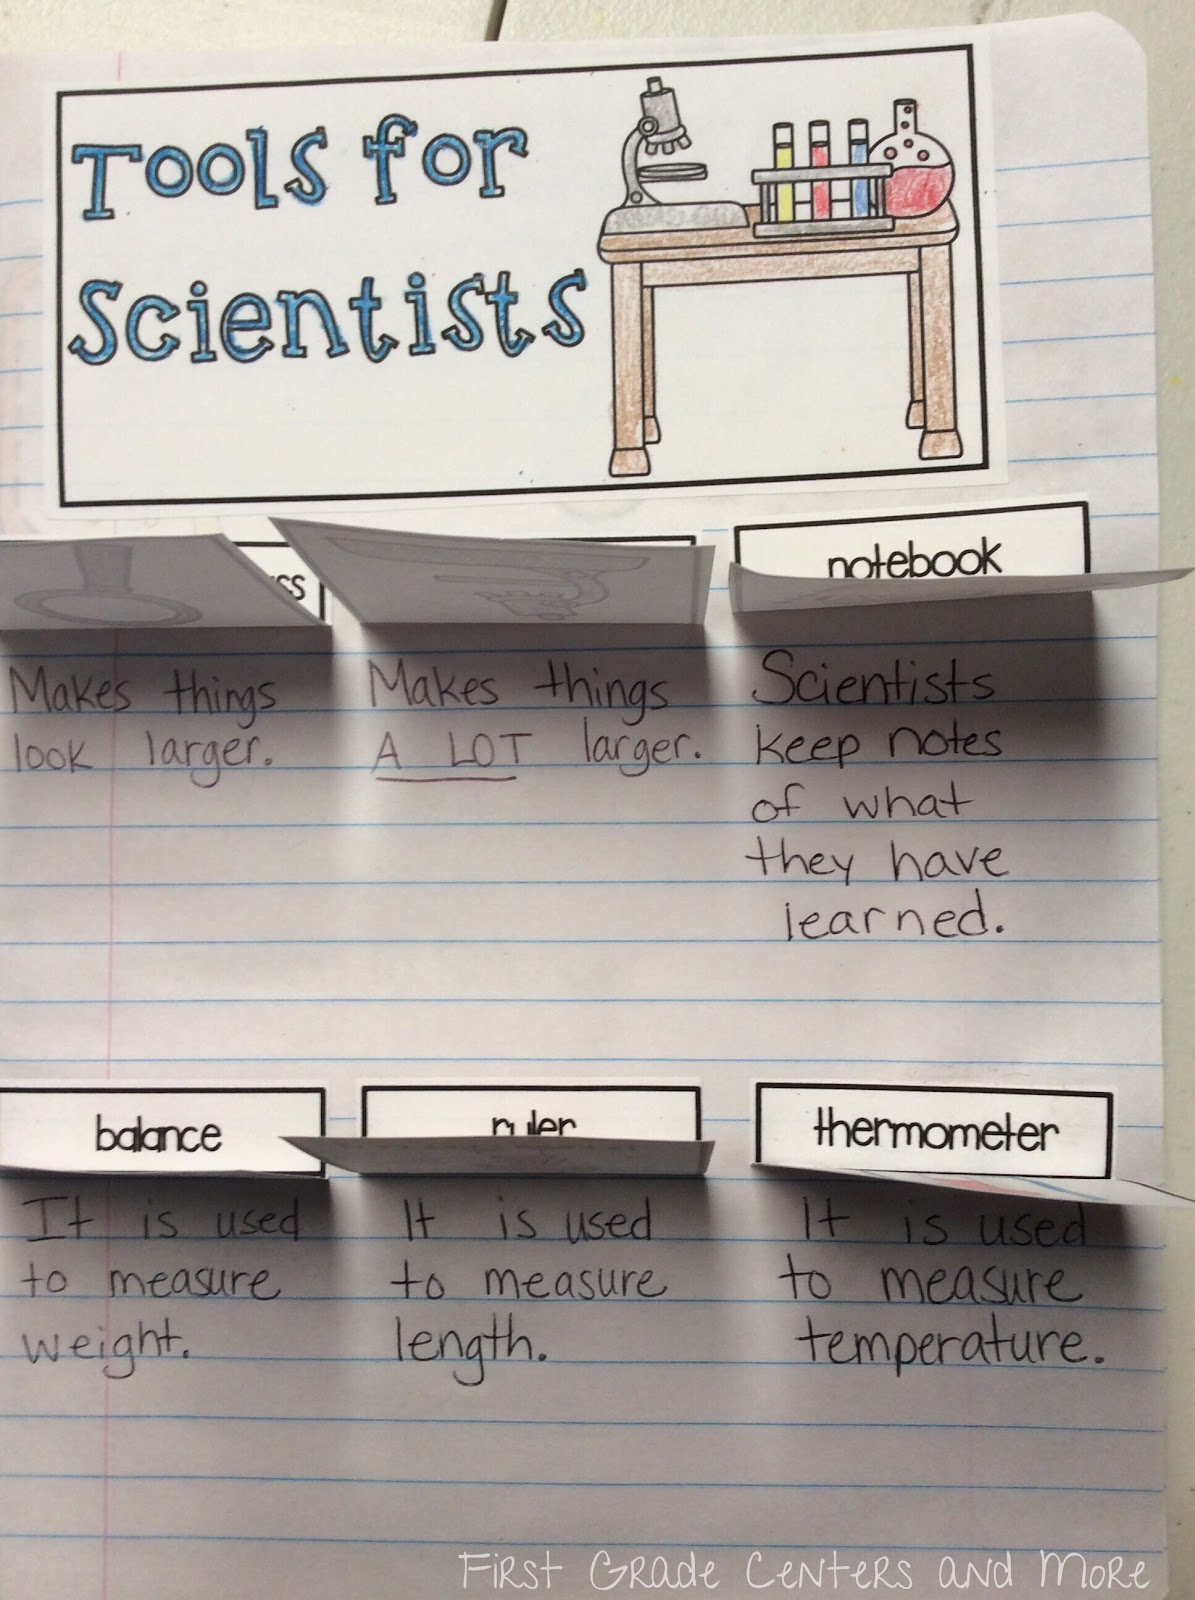 Tools for
Scientists
ss
notebook
Makes things
look larger.
Makes things
A LOT larger.
Scientists
keep notes
of what
they have
learned.
balance
ruler
thermometer
It is used
to measure
weight.
It is used
to measure
length.
It is used
to measure
temperature.
First Grade Centers and More